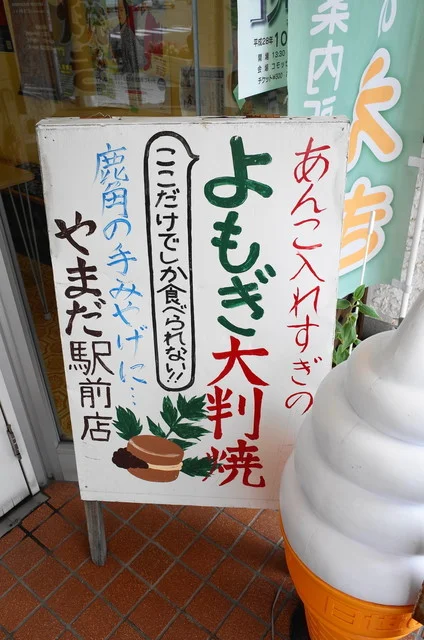 あんこ入れすぎの
よもぎ大判焼
ここだけでしか食べられない!!
鹿角の手みやげに…
やまだ駅前店
平成28年10
案内